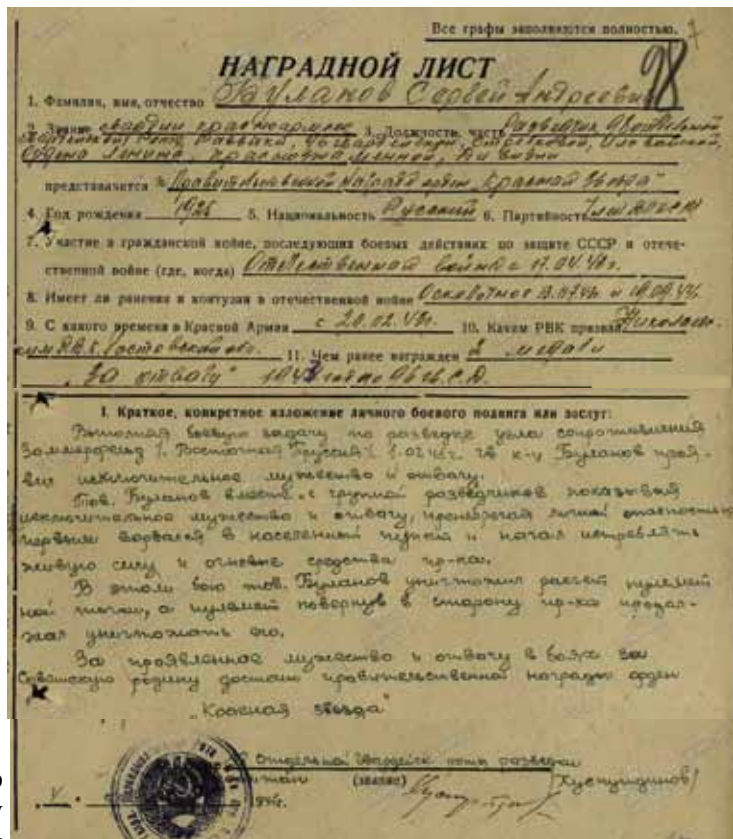 Все графы заполняются полностью.
98
НАГРАДНОЙ ЛИСТ
1. Фамилия, имя, отчество Буланов Сергей Андреевич
2. Звание гвардии красноармеец 3. Должность, часть Разведчик
разведки, стрелковой,
ордена Ленина, Краснознаменной, дивизии
представляется к Правительственной награде орден „Красная Звезда"
4. Год рождения 1925 5. Национальность Русский 6. Партийность
7. Участие в гражданской войне, последующих боевых действиях по защите СССР и отече-
ственной войне (где, когда) Отечественная война с
8. Имеет ли ранения и контузии в отечественной войне Осколочное и 19.09.44.
9. С какого времени в Красной Армии с 20.02.43г. 10. Каким РВК призван Николаев-
ским РВК Ростовской обл. 11. Чем ранее награжден 2 медали
„За отвагу"
I. Краткое, конкретное изложение личного боевого подвига или заслуг:
Выполняя боевую задачу по разведке узла сопротивления
Зоммерфельд Восточная Пруссия гв. к-ц Буланов проя-
вил исключительное мужество и отвагу.
Тов. Буланов вместе с группой разведчиков показывая
исключительное мужество и отвагу, пренебрегая личной опасностью
первым ворвался в населенный пункт и начал истреблять
живую силу и огневые средства пр-ка.
В этом бою тов. Буланов уничтожил расчет пулемет
ной точки, а пулемет повернув в сторону пр-ка продол-
жал уничтожать его.
За проявленное мужество и отвагу в боях за
Советскую родину достоин правительственной награды орден
„Красная звезда"
Отдельной Гвардейск роты разведки
(звание) (Хуснутдинов)